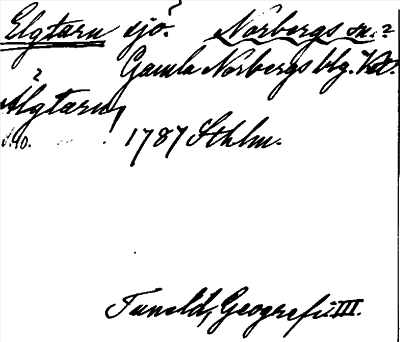 Elgtarn sjö. Norbergs sn.
Gamla Norbergs blg. Vm.
Älgtarn,
S. 40.
1787 Sthlm.
Tuneld, Geografi III.